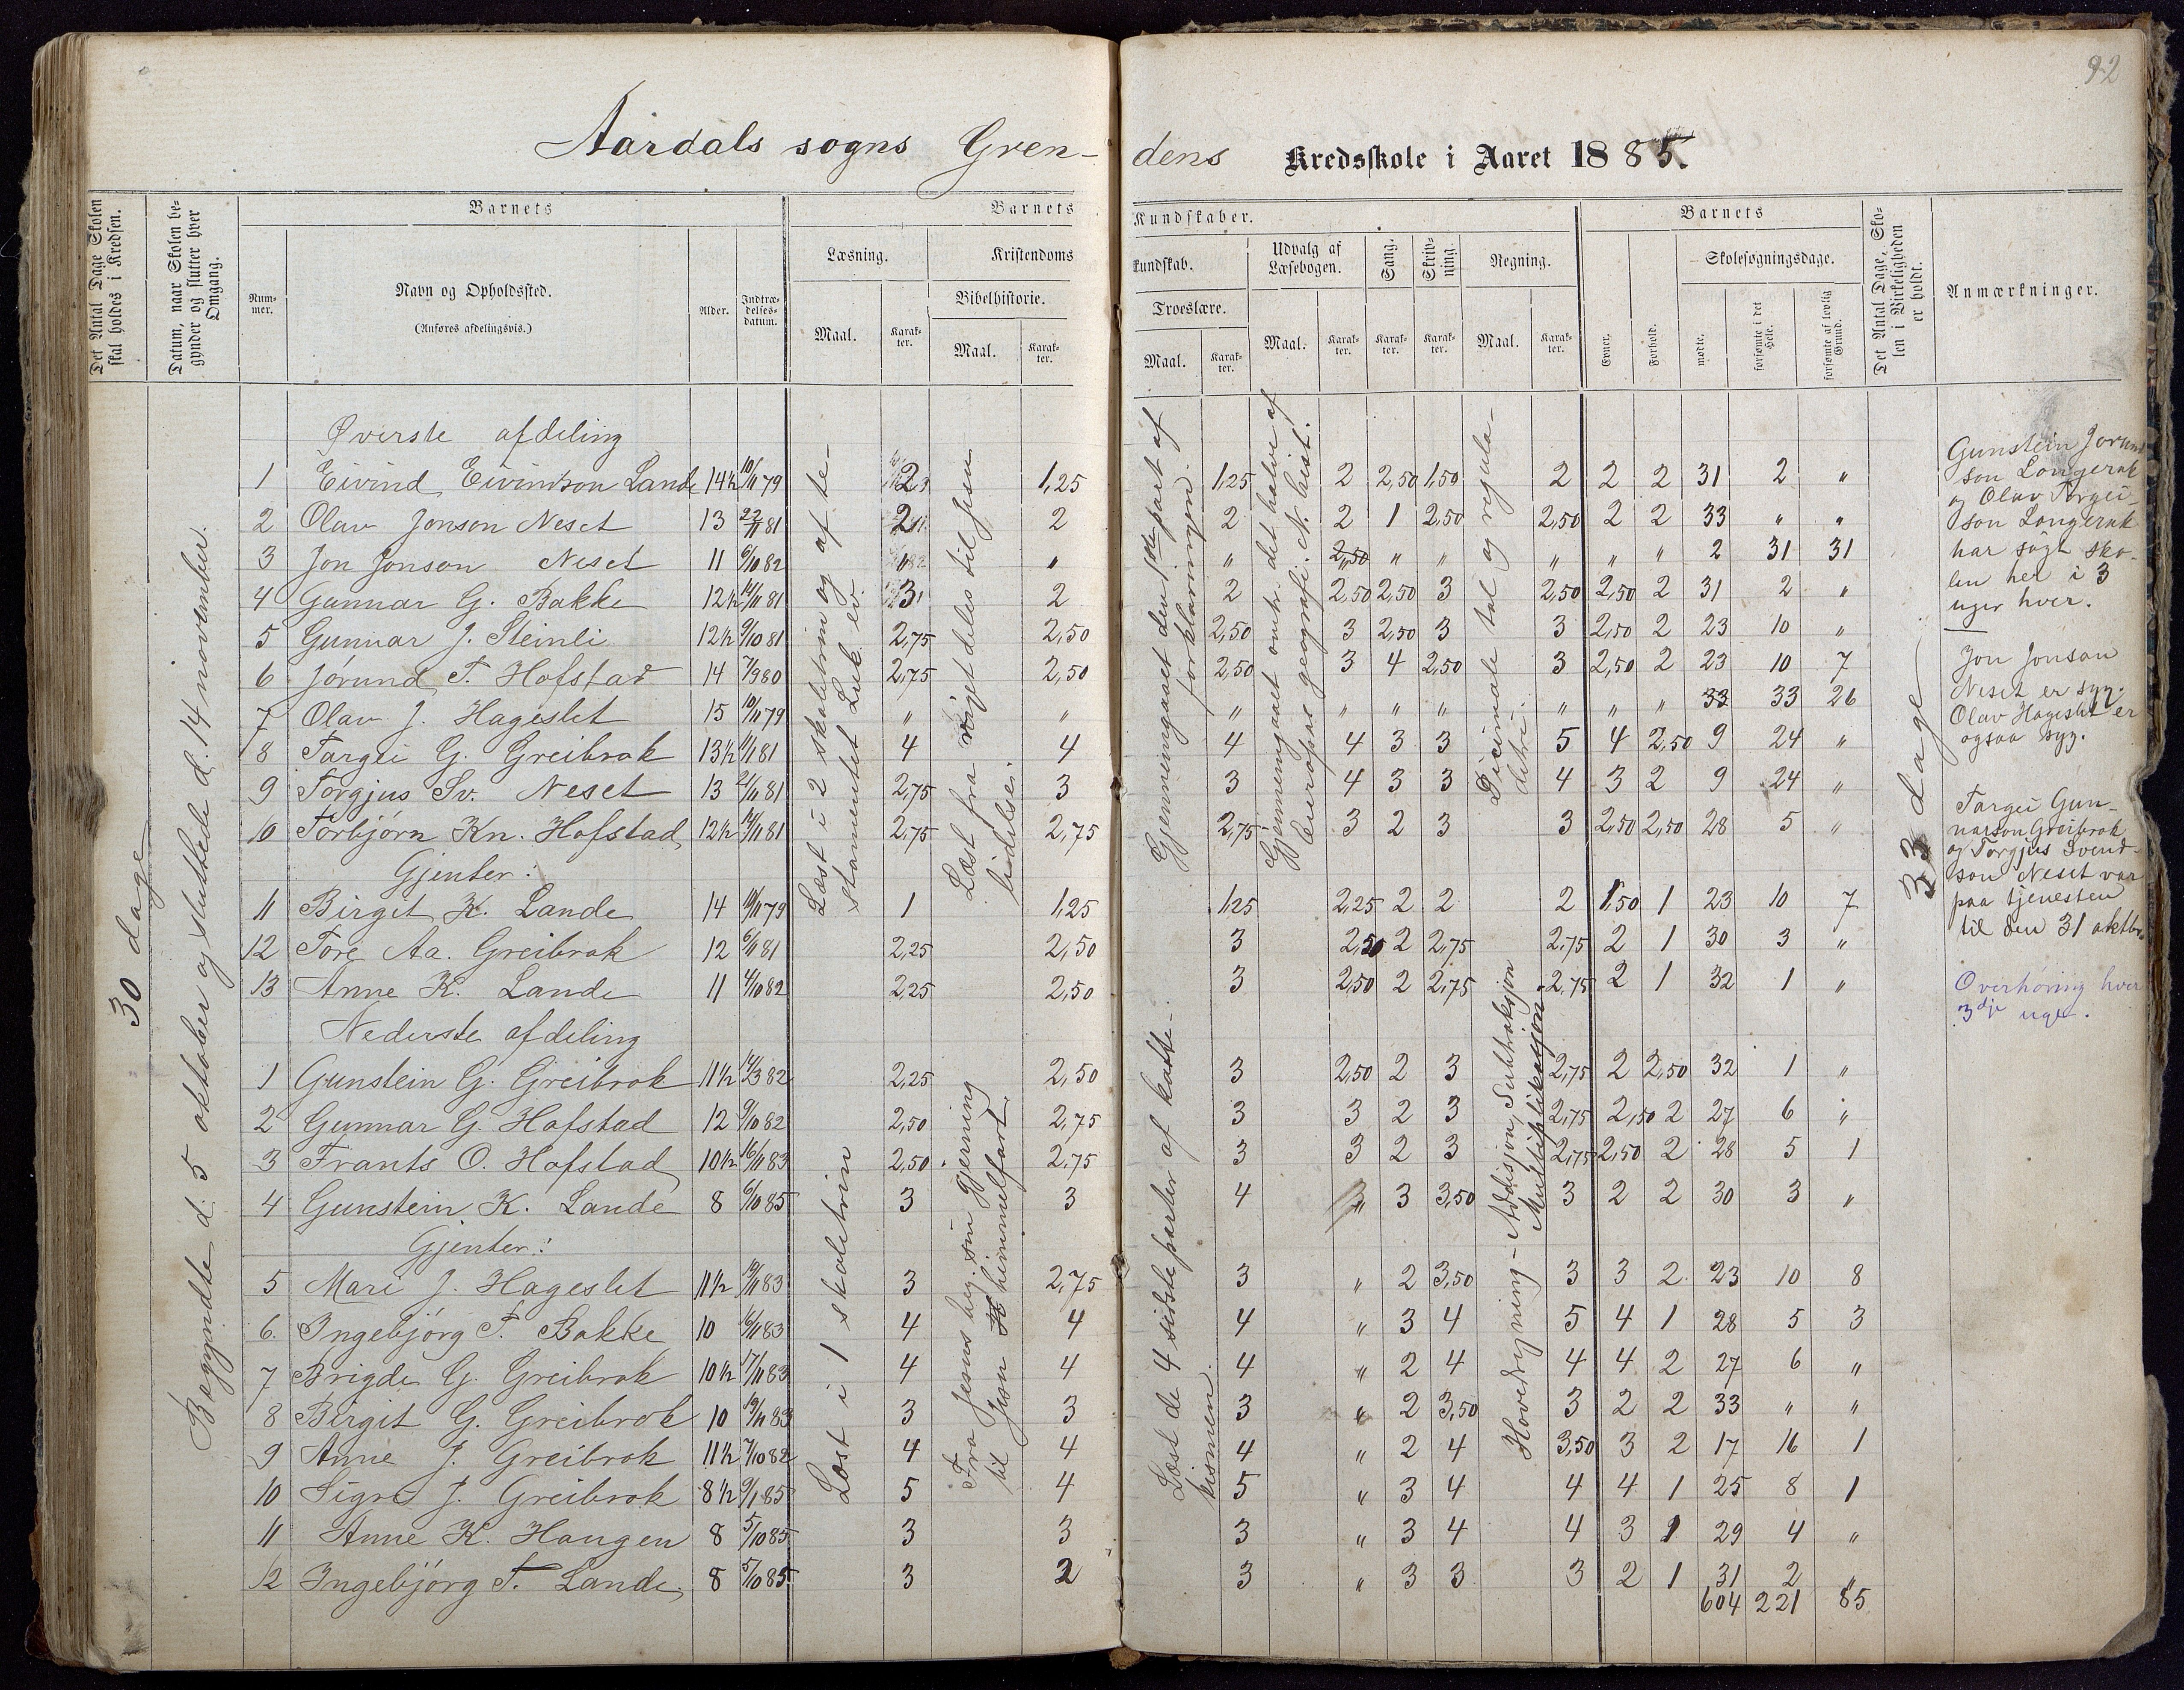 92
Aardals sogns Grendens Kredsskole i Aaret 1885.
Det Antal Dage Skolen skal holdes i Kredsen.
Datum, naar Skolen begynder og slutter hver Omgang.
Barnets
Nummer.
Navn og Opholdssted.
(Anføres afdelingsvis.)
Alder.
Indtrædelsesdatum.
Barnets Kundskaber.
Læsning.
Maal.
Karakter.
Kristendomskundskab.
Bibelhistorie.
Maal.
Karakter.
Troeslære.
Maal.
Karakter.
Udvalg af Læsebogen.
Maal.
Karakter.
Sang.
Karakter.
Skrivning.
Karakter.
Regning.
Maal.
Karakter.
Barnets
Evner.
Forhold.
Skolesøgningsdage.
mødte.
forsømte i det Hele.
forsømte af lovlig Grund.
Det Antal Dage, Skolen i Virkeligheden er holdt.
Anmærkninger.
30 dage
Begyndte d. 5 oktober og sluttede d. 14 november.
Øverste afdeling
1 Eivind Eivindson Lande 14½ 10/11 79 2 1,25 1,25 2 2,50 1,50 2 2 2 31 2 "
2 Olav Jonson Neset 13 22/11 81 2 2 2 2 1 2,50 2,50 2 2 33 " "
3 Jon Jonson Neset 11 6/10 82 " " " " " " " " " 2 31 31
4 Gunnar G. Bakke 12½ 14/11 81 3 2 2 2,50 2,50 3 2,50 2,50 2 31 2 "
5 Gunnar J. Steinli 12½ 9/10 81 2,75 2,50 2,50 3 2,50 3 3 2,50 2 23 10 "
6 Jørund T. Hofstad 14 7/9 80 2,75 2,50 2,50 3 4 2,50 3 2,50 2 23 10 7
7 Olav J. Hageslet 15 10/11 79 " " " " " " " " " 33 33 26
8 Targei G. Greibrok 13½ 11/1 81 4 4 4 4 3 3 5 4 2,50 9 24 "
9 Torgjus Sv. Neset 13 21/11 81 2,75 3 3 4 3 3 4 3 2 9 24 "
10 Torbjørn Kn. Hofstad 12½ 14/11 81 2,75 2,75 2,75 3 2 3 3 2,50 2,50 28 5 "
Gjenter:
11 Birgit K. Lande 14 10/11 79 1 1,25 1,25 2,25 2 2 2 1,50 1 23 10 7
12 Tore Aa. Greibrok 12 6/11 81 2,25 2,50 3 2,50 2 2,75 2,75 2 1 30 3 "
13 Anne K. Lande 11 4/10 82 2,25 2,50 3 2,50 2 2,75 2,75 2 1 32 1 "
Nederste afdeling
1 Gunstein G. Greibrok 11½ 14/3 82 2,25 2,50 3 2,50 2 3 2,75 2 2,50 32 1 "
2 Gunnar G. Hofstad 12 9/10 82 2,50 2,75 3 3 2 3 2,75 2,50 2 27 6 "
3 Frants O. Hofstad 10½ 16/11 83 2,50 2,75 3 3 2 3 2,75 2,50 2 28 5 1
4 Gunstein K. Lande 8 6/10 85 3 3 4 " 3 3,50 3 2 2 30 3 "
Gjenter:
5 Mari J. Hageslet 11½ 19/11 83 3 2,75 3 " 2 3,50 3 3 2 23 10 8
6. Ingebjørg T. Bakke 10 16/11 83 4 4 4 " 3 4 5 4 1 28 5 3
7 Brigde G. Greibrok 10½ 17/11 83 4 4 4 " 2 4 4 4 2 27 6 "
8 Birgit G. Greibrok 10 19/11 83 3 3 3 " 2 3,50 3 2 2 33 " "
9 Anne J. Greibrok 11½ 7/10 82 4 4 4 " 2 4 3,50 3 2 17 16 1
10 Sigri J. Greibrok 8½ 9/1 85 5 4 5 " 3 4 4 4 1 25 8 1
11 Anne K. Haugen 8 5/10 85 3 3 3 " 3 4 4 3 1 29 4 "
12 Ingebjørg T. Lande. 8 5/10 85 3 2 3 " 3 3 3 2 1 31 2 "
604 221 85
Læst i 2 skoletrin og af testamentet Luk. ev.
Læst i 1 skoletrin
Læst fra vigt deles til Jesu lidelse.
Fra Jesus beg. sin gjerning til himmelfart.
Gjennemgaaet den 1ste part af forklaringen.
Læst de 4 sidste parter af katekismen.
Gjennemgaaet omtr. det halve af Europas geografi. N. hist.
Decimale tal og reguladetri.
Hovedregning - Addisjon, Subtraksjon Multiplikasjon
33 dage
Gunstein Jorundson Longerak
og Olav Torgeison Longerak
har søgt skolen her i 3
uger hver.
Jon Jonson
Neset er syg.
Olav Hageslet er
ogsaa syg.
Targei Gunnarson Greibrok
og Torgjus Svendson Neset var
paa tjenesten
til den 31 oktbr.
Overhøring hver
3dje uge.